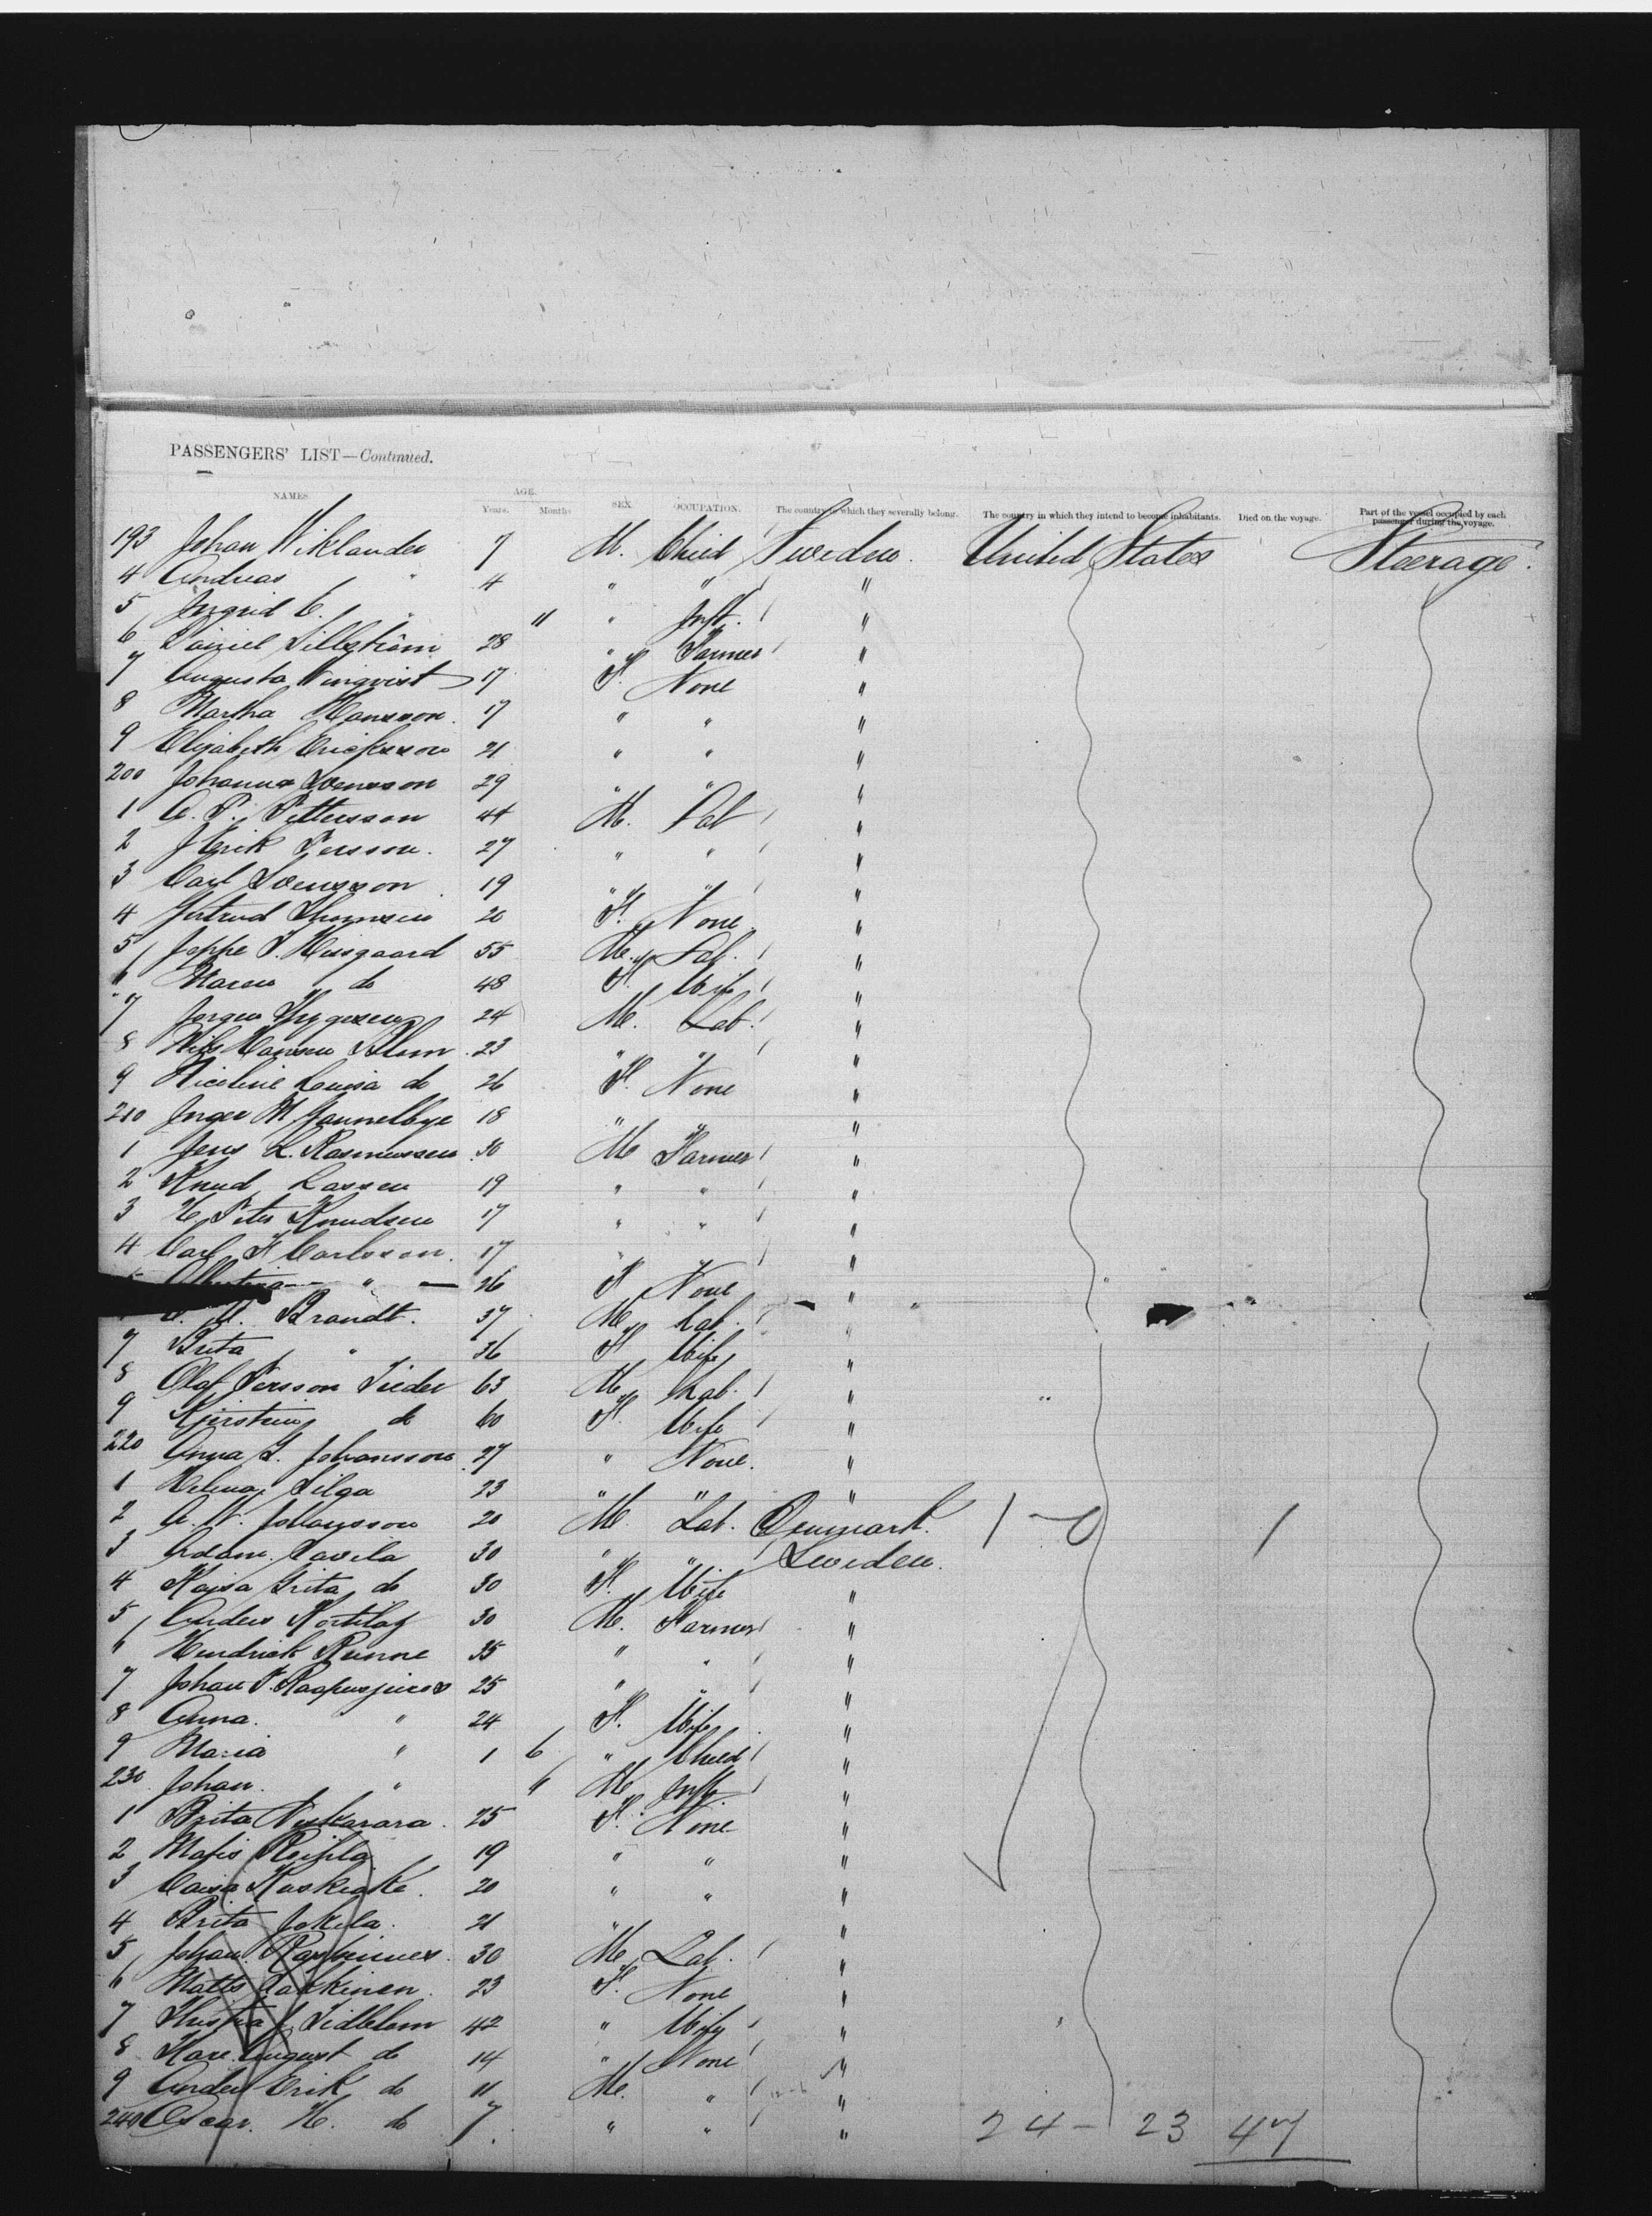 PASSENGERS' LIST—Continued.
NAMES. AGE. Years. Months SEX. OCCUPATION. The country which they severally belong. The country in which they intend to become inhabitants. Died on the voyage. Part of the vessel occupied by each passenger during the voyage.
193 Johan Wiklander 7 M. Child Sweden. United States Steerage.
4 Andreas " 4 " " "
5 Ingrid C. " 11 " Inft. "
6 Daniel Lillström 28 " Farmer "
7 Augusta Winqvist 17 F. None "
8 Martha Hansson. 17 " " "
9 Elizabeth Ericksson 21 " " "
200 Johanna Svensson 29 " " "
1 A. P. Pettersson 44 M. Lab "
2 J Erik Persson. 27 " " "
3 Carl Svensson 19 " " "
4 Gertrud Thomsen 20 F. None "
5 Jeppe P. Husgaard 55 M. Lab. "
6 Maren do 48 F Wife "
7 Jorgen Thygesen 24 M. Lab. "
8 Nils Hansen Blum 23 " " "
9 Nicoline Louisa do 26 F. None "
210 Inger M. 18 " " "
1 Jens L. Rasmussen 30 M Farmer "
2 Knud Lassen 19 " " "
3 H. Peter Knudsen 17 " " "
4 Carl F Carlsson. 17 " " "
Albertina " 26 F None "
Brandt. 37 M Lab. "
7 Brita " 36 F Wife "
8 Olof Persson 63 M Lab. "
9 Kjersting do 60 F. Wife "
220 Anna L. Johansson 27 " None. "
1 Helena Lilga 23 " " "
2 A. W. Johansson 20 M Lab. Denmark. 1 - 0 1
3 Adam. Lavela 30 " " Sweden.
4 Kajsa Grita do 30 F. Wife "
5 Anders 30 M. Farmer "
6 Hendrick Runne 35 " " "
7 Johan P. 25 " " "
8 Anna. " 24 F. Wife "
9 Maria " 1 6 " Child "
230 Johan. " 6 M Inft "
1 Brita 25 F. None "
2 19 " " "
3 Caisa 20 " " "
4 Brita Jokela. 21 " " "
5 Johan 30 M. Lab. "
6 Matts 23 F. None "
7 Lidblom 42 " Wife "
8 August do 14 " None "
9 Anders Erik do 11 M. " "
240 Oscar. H. do 7. " " " 24 - 23 47